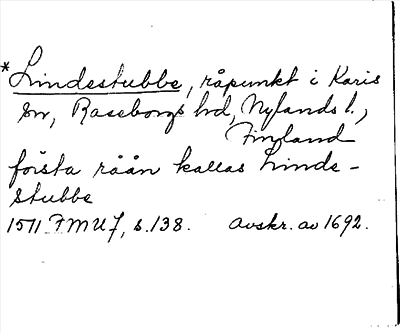 * Lindestubbe, råpunkt i Karis
sn, Raseborgs hd, Nylands l.,
Finland
första råån kallas Linde-
stubbe
1511 FMU 7, s.138. Avskr. av 1692.